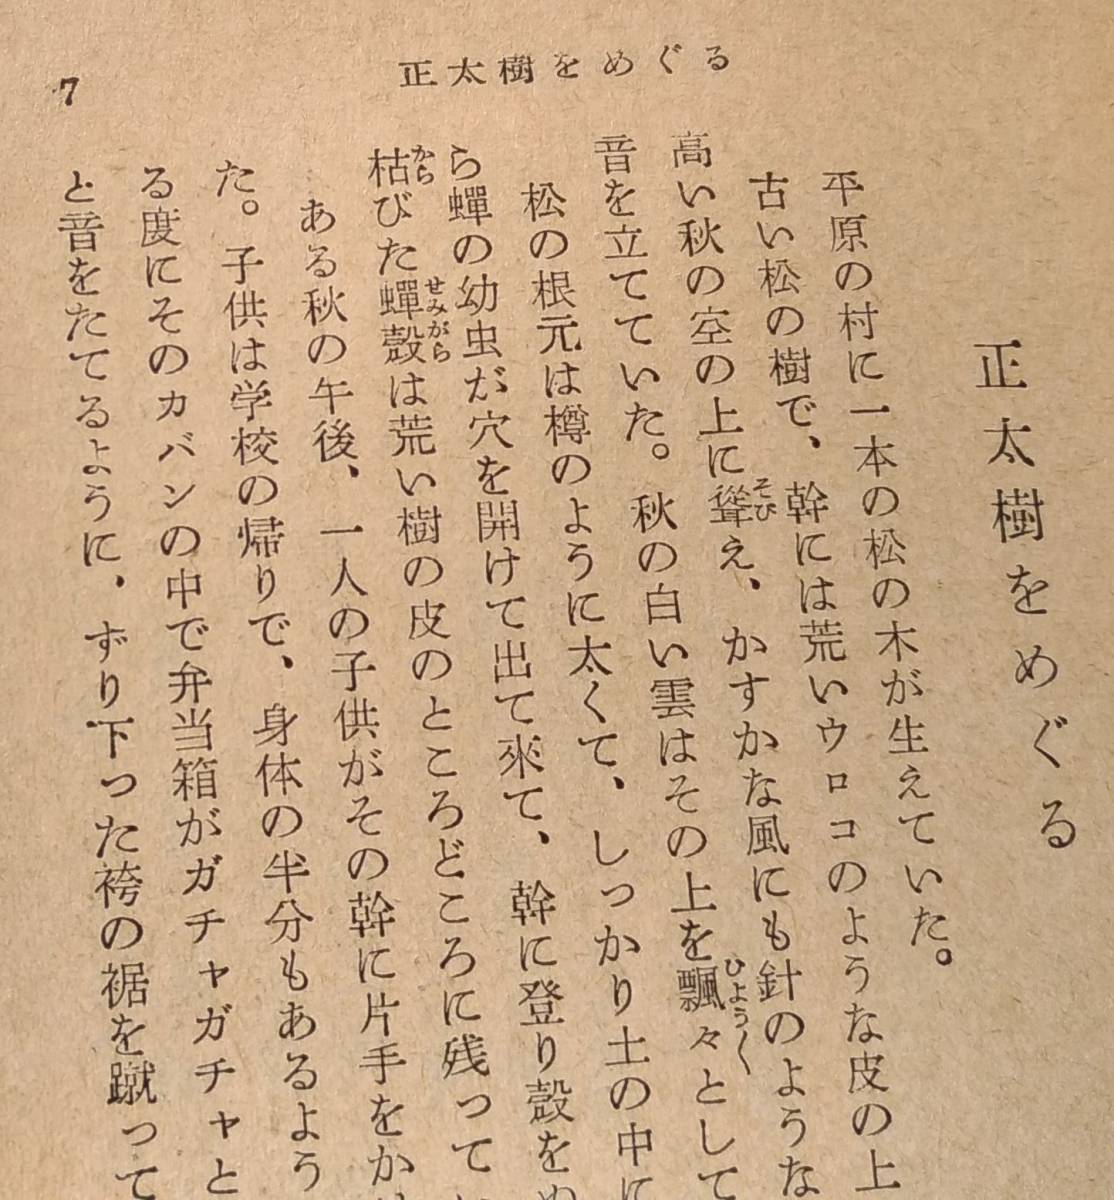 正太樹をめぐる
7
正太樹をめぐる
平原の村に一本の松の木が生えていた。
古い松の樹で、幹には荒いウロコのような皮の上
そび
ひよう〱
高い秋の空の上に聳え、かすかな風にも針のような
音を立てていた。秋の白い雲はその上を飄々として
松の根元は樽のように太くて、しっかり土の中に
ら蟬の幼虫が穴を開けて出て來て、幹に登り殻をぬ
から
せみがら
枯びた蟬殻は荒い樹の皮のところどころに残ってい
ある秋の午後、一人の子供がその幹に片手をか
た。子供は学校の帰りで、身体の半分もあるよう
る度にそのカバンの中で弁当箱がガチャガチャと
と音をたてるように、ずり下った袴の裾を蹴って